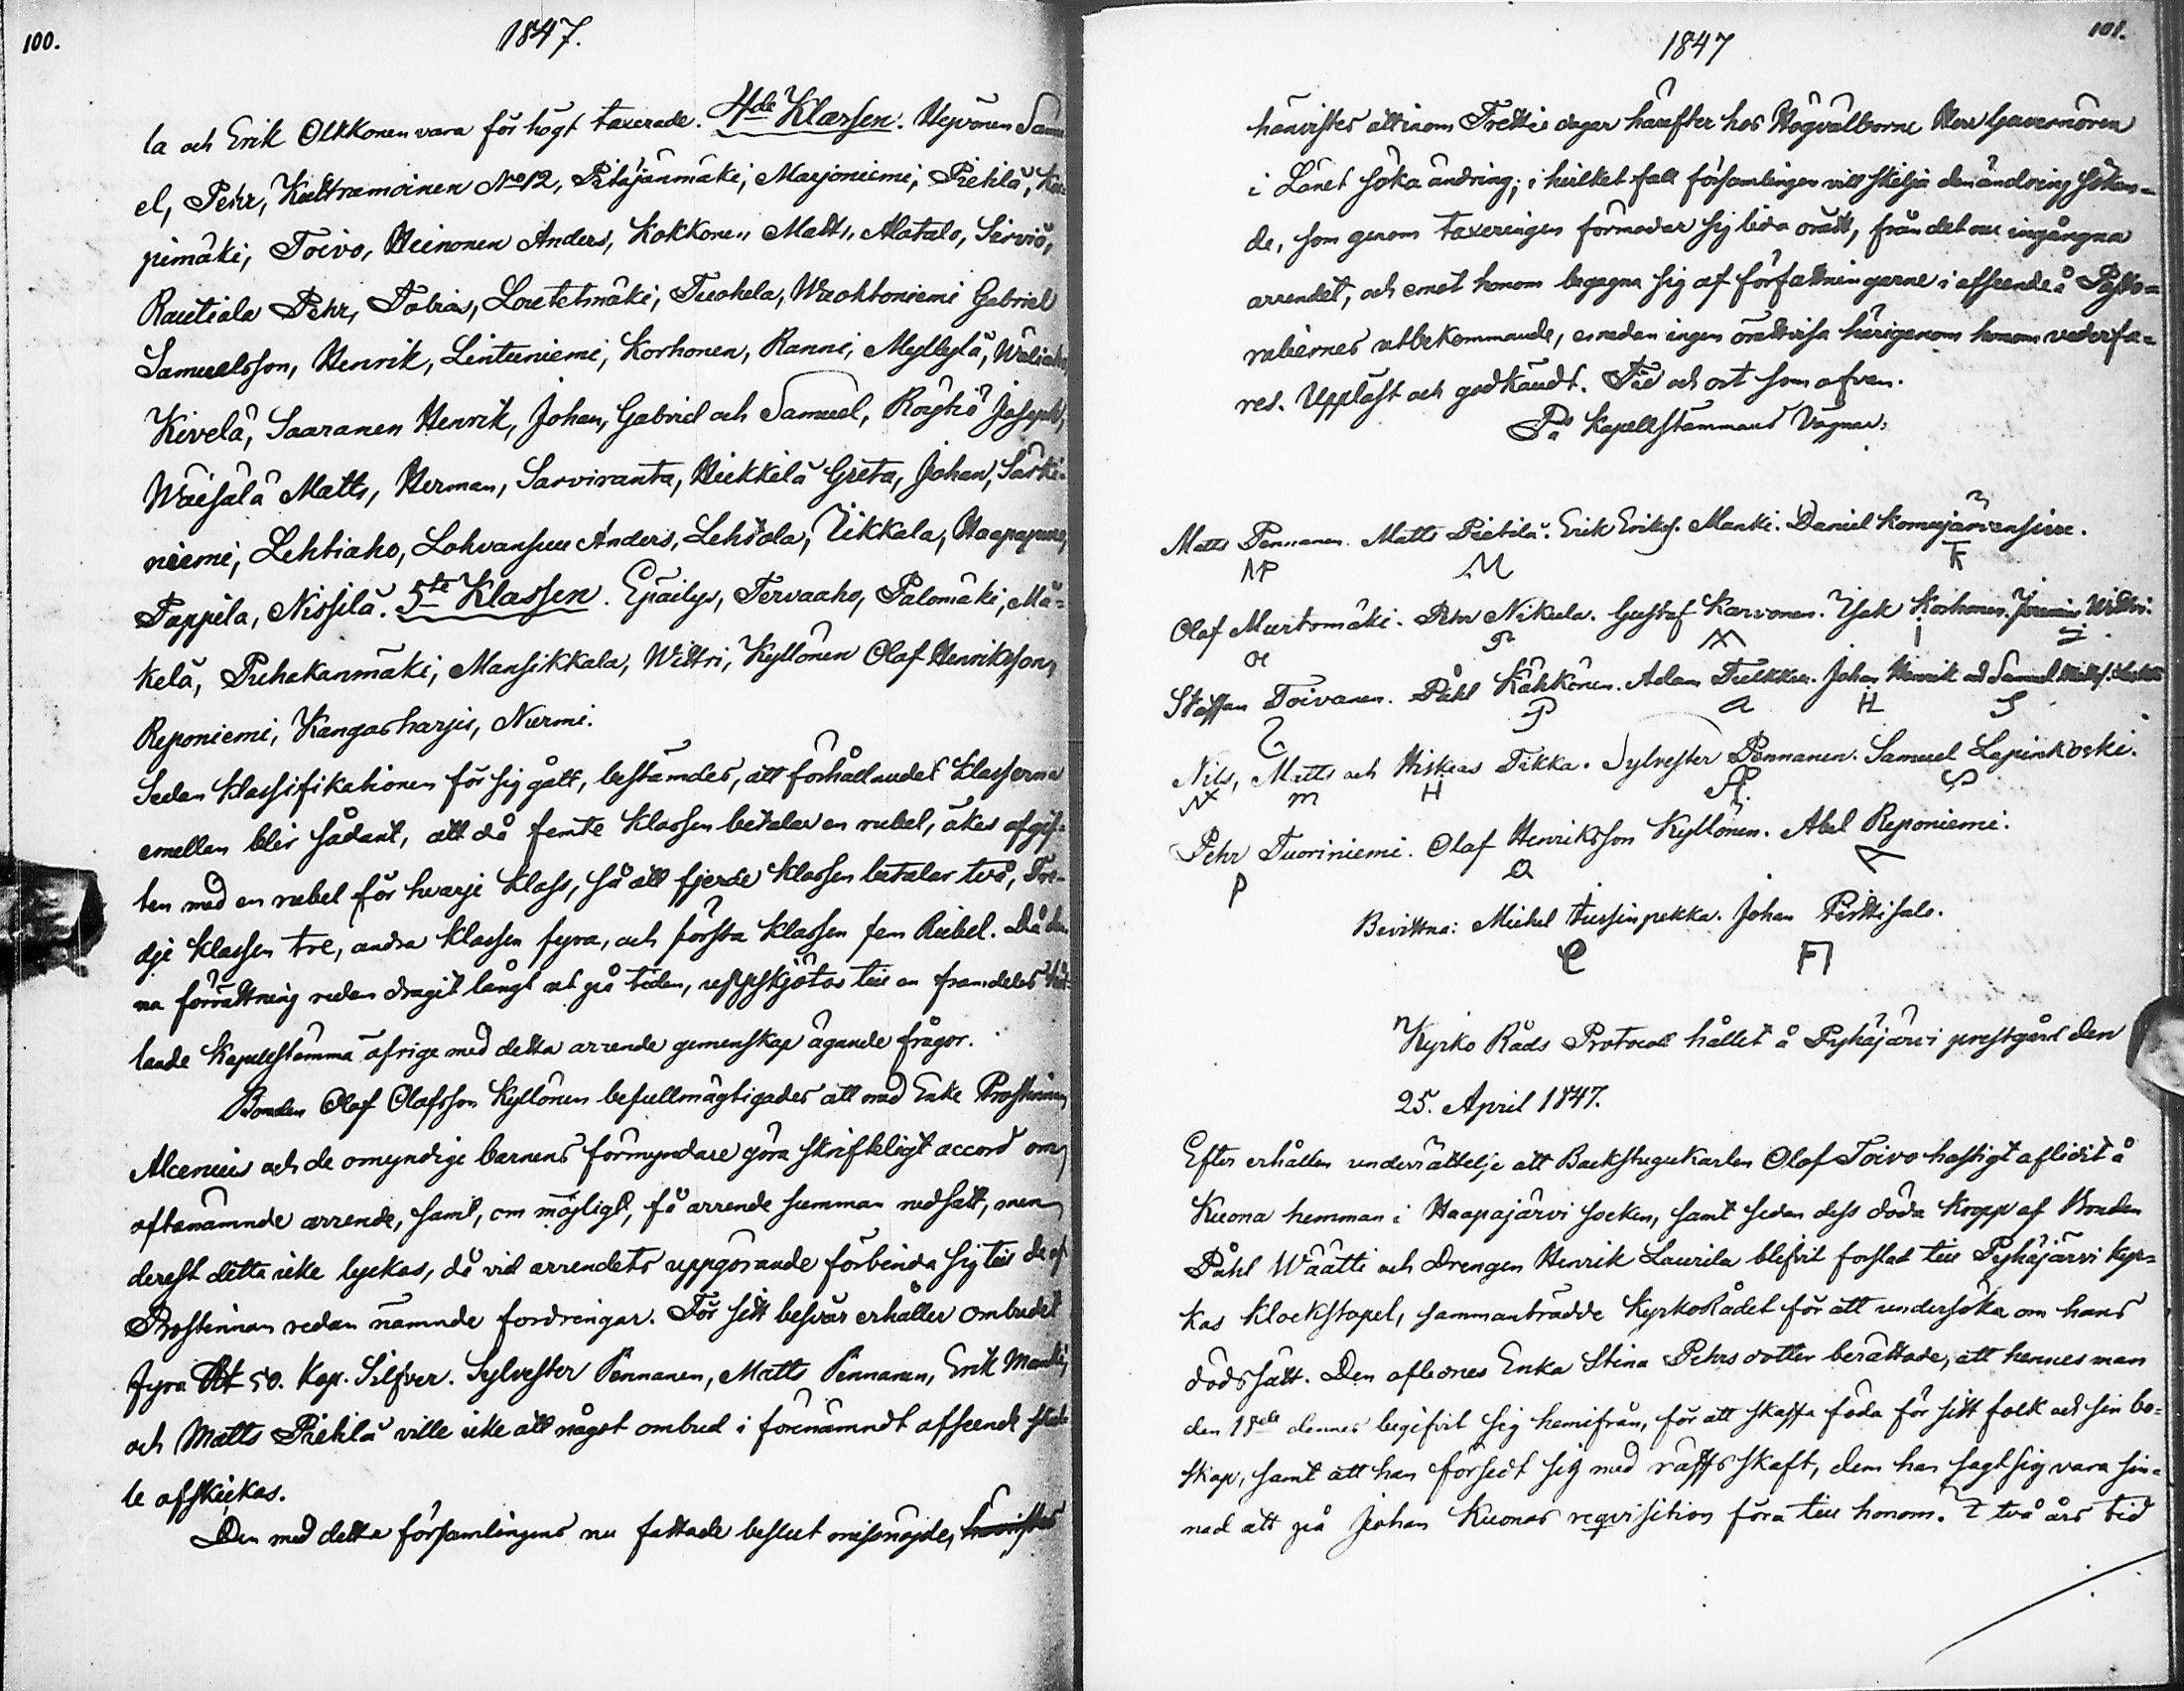 100.
1847.
la och Erik Olkkonen vara för högt taxerade. 4de Klassen. Hyvönen Samu
el, Pehr, Kultramoinen No 12, Pitäjänmäki, Marjoniemi, Pietilä, Ka-
pimäki, Toivo, Heinonen Anders, Kokkonen Matts, Alatalo, Sirviö,
Rautiala Pehr, Tobias, Loutetmäki, Tuokela, Wuohtoniemi Gabriel
Samuelsson, Henrik, Lintuniemi, Korhonen, Ranni, Myllylä, Waliaho
Kivelä, Saaranen Henrik, Johan, Gabriel och Samuel, Röytiö Joseph,
Waisälä Matts, Herman, Sarviranta, Hiekkilä Greta, Johan, Särki-
niemi, Lehtiaho, Lohvansuu Anders, Lehtola, Tikkala, Haapapuro,
Pappila, Nissilä. 5te Klassen. Epäilys, Tervaaho, Palomäki, Mä-
kelä, Puhakanmäki, Mansikkala, Wittri, Kyllönen Olof Henriksson,
Reponiemi, Kangasharju, Nurmi.
Sedan klassifikationen för sig gått, bestämdes, att förhållandet klasserna
emellan blir sådant, att då femte klassen betalar en rubel, ökes afgif-
ten med en rubel för hvarje klass, så att fjerde klassen betalar två, Tre-
dje klassen tre, andra klassen fyra, och första klassen fem Rubel. Då den-
na förrättning redan dragit långt ut på tiden, uppskjötos till en framdeles hål-
lande Kapellstämma öfrige med detta arrende gemenskap ägande frågor.
Bonden Olof Olofsson Kyllönen befullmägtigades att med Enke Prostinnan
Alcenius och de omyndige barnens förmyndare göra skrifteligt accord om
oftanämnde arrende, samt, om möjligt, få arrende summan nedsatt, men
derest detta icke lyckas, då vid arrendets uppgörande förbinda sig till de af
Prostinnan redan nämnde fordringar. För sitt besvär erhåller ombudet
fyra Rbl 50. Kop. Silfver. Sylvester Pennanen, Matts Pennanen, Erik Manki,
och Matts Pietilä ville icke att något ombud i förenämndt afseende skul-
le afskickas.
Den med detta församlingens nu fattade beslut missnöjde, hänvistes
101.
1847
hänvistes att inom Trettio dagar härefter hos Högvälborne Herr Gouvernören
i Länet söka ändring; i hvilket fall församlingen vill skilja den ändring sökan-
de, som genom taxeringen förmodar sig lida orätt, från det nu ingångna
arrendet, och emot honom begagna sig af författningarne i afseende å Pasto-
raliernes utbekommande, emedan ingen orättvisa härigenom honom vederfa-
res. Uppläst och godkändt. Tid och ort som ofvan.
På Kapellstämmans Vägnar:
Matts Pennanen. Matts Pietilä. Erik Erikss. Manki. Daniel Komujärvensivu.
MP M F
Olof Murtomäki. Pehr Nikula. Gustaf Karvonen. Isak Korhonen. Wittri.
Staffan Toivanen. Påhl Kähkönen. Adam Tulkku. Johan Henrik och Samuel
P A H S
Nils, Matts och Hiskias Tikka. Sylvester Pennanen. Samuel Lapinkoski.
N m H S
Pehr Tuoriniemi. Olof Henriksson Kyllönen. Abel Reponiemi.
P O A
Bevittna: Michel Jussinpekka. Johan Pirttisalo.
Kyrko Råds Protocoll hållet å Pyhäjärvi prestgård den
25. April 1847.
Efter erhållen underrättelse att Backstugukarlen Olof Toivo hastigt aflidit å
Kuona hemman i Haapajärvi socken, samt sedan dess döda kropp af Bonden
Påhl Wäätti och Drengen Henrik Laurila blifvit forslad till Pyhäjärvi kyr-
kas klockstapel, sammanträdde KyrkoRådet för att undersöka om hans
dödssätt. Den aflidnes Enka Stina Pehrsdotter berättade, att hennes man
den 18de dennes begifvit sig hemifrån, för att skaffa föda för sitt folk och sin bo-
skap, samt att han försedt sig med räfsskaft, dem han sagt sig vara sin-
nad att på Johan Kuonas reqvisition föra till honom. I två års tid